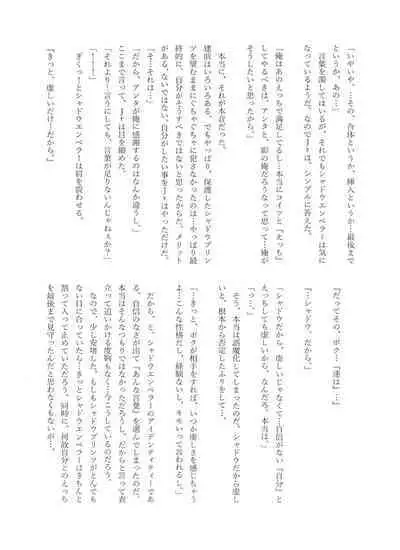 『いやいや、…その、合体というか、挿入というか…最後まで
というか、あの…』
　言葉を濁してはいるが、それでもシャドウエンペラーは気に
なっているようだ。なのでＪｒは、シンプルに答えた。
「俺はあのえっちで満足してるし…本当にコイツと『えっち』
してやるべきは、アンタと、影の俺だろうなって思って…俺が
そうしたいと思ったから。」
　本当に、それが本音だった。
　建前はいろいろある。でもやっぱり、保護したシャドウプリン
ツを望むままにぐちゃぐちゃに犯さなかったのは…やっぱり最
終的に、自分がそうすべきではないと思ったからだ。メリット
がある、ないではない。自分がしたい事をＪｒはやっただけだ。
『そ…それは…』
「だから、アンタが感謝するのはなんか違うし。」
　ここまで言って、Ｊｒは目を細めた。
「それより…言うにしても、言葉が足りないんじゃねぇか？」
『！……』
　ぎくっ…とシャドウエンペラーは肩を震わせる。
『きっと、虚しいだけ…だから。』
『だってその、ボク…「達は」…』
『…シャドウ、だから。』
「シャドウだから。虚しいじゃなくて…自信がない『自分』と
えっちしても虚しいから、なんだろ。本当は。」
『っ…。』
　そう、本当は誤魔化してしまったのだ。シャドウだから虚し
いと、根本から否定したふりをして…。
『…きっと、ボクが相手をすれば、いつか虚しさを感じちゃう
よ…こんな性格だし、経験ないし、キモいって言われるし。』
　だから、と、シャドウエンペラーのアイデンティティーであ
る、自信のなさが出て『あんな言葉』を選んでしまったのだ。
本当はそんなつもりではなかっただろうし、だからと言って表
立って追いかける度胸もなく…今こうしているのだろう。
　なので、少し安堵した。もしもシャドウプリンツがとんでも
ない目に合っていたら…きっとシャドウエンペラーはきちんと
割って入って止めていただろう。同時に、何故自分とのえっち
を最後まで見守ったんだと思わなくもないが…。